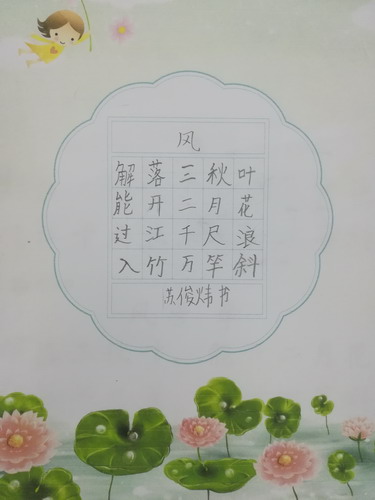 风
解落三秋叶
能开二月花
过江千尺浪
入竹万竿斜
苏俊炜书